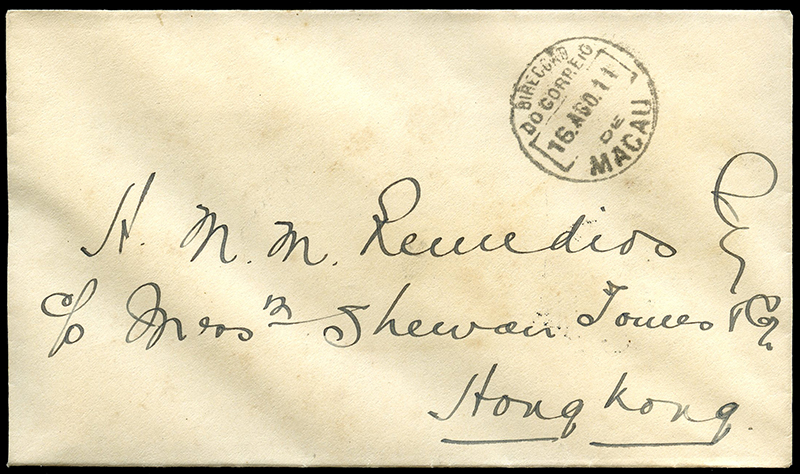 DIRECÇÃO
DO CORREIO
16.AGO.11
DE
MACAU
H. M. M. Remedios Esq
c/o Messrs Shewan Tomes & Co.
Hong Kong.